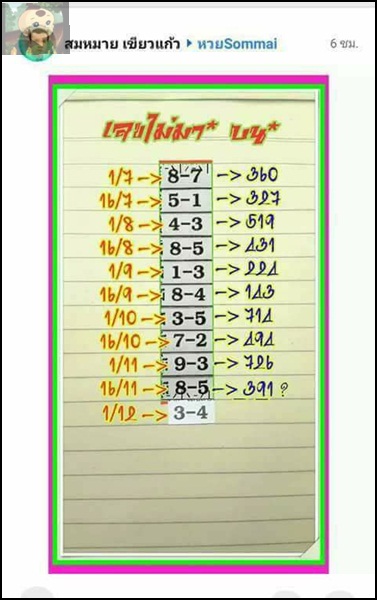 สมหมาย เขียวแก้ว ▸ หวยSommai 6 ชม.
เลขไม่มา* บน*
1/7 -> 8-7 -> 360
16/7 -> 5-1 -> 327
1/8 -> 4-3 -> 519
16/8 -> 8-5 -> 431
1/9 -> 1-3 -> 224
16/9 -> 8-4 -> 143
1/10 -> 3-5 -> 714
16/10 -> 7-2 -> 494
1/11 -> 9-3 -> 726
16/11 -> 8-5 -> 391?
1/12 -> 3-4